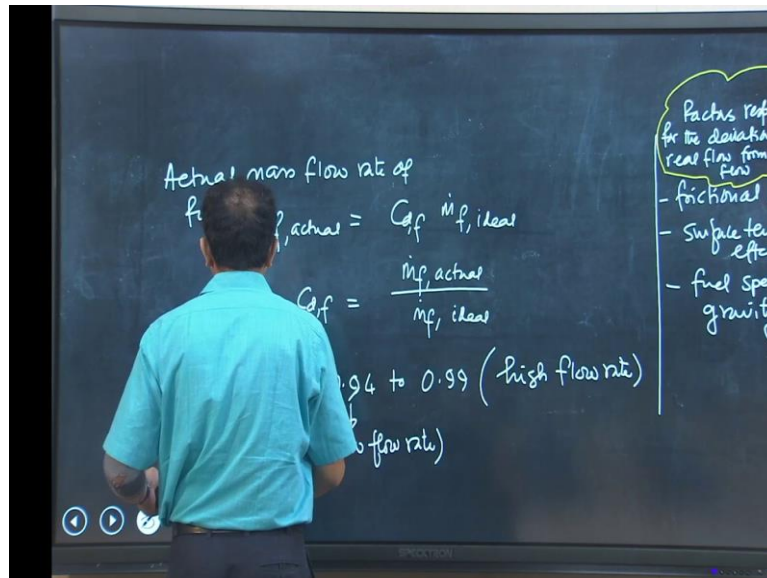 Actual mass flow rate of
f,actual = Cd,f ṁf, ideal
Cd,f = ṁf, actual / ṁf, ideal
.94 to 0.99 (high flow rate)
flow rate)
Factors resp
for the deviatio
real flow from
flow
- frictional
- surface te
effe
- fuel spe
gravit
SPECKTRON